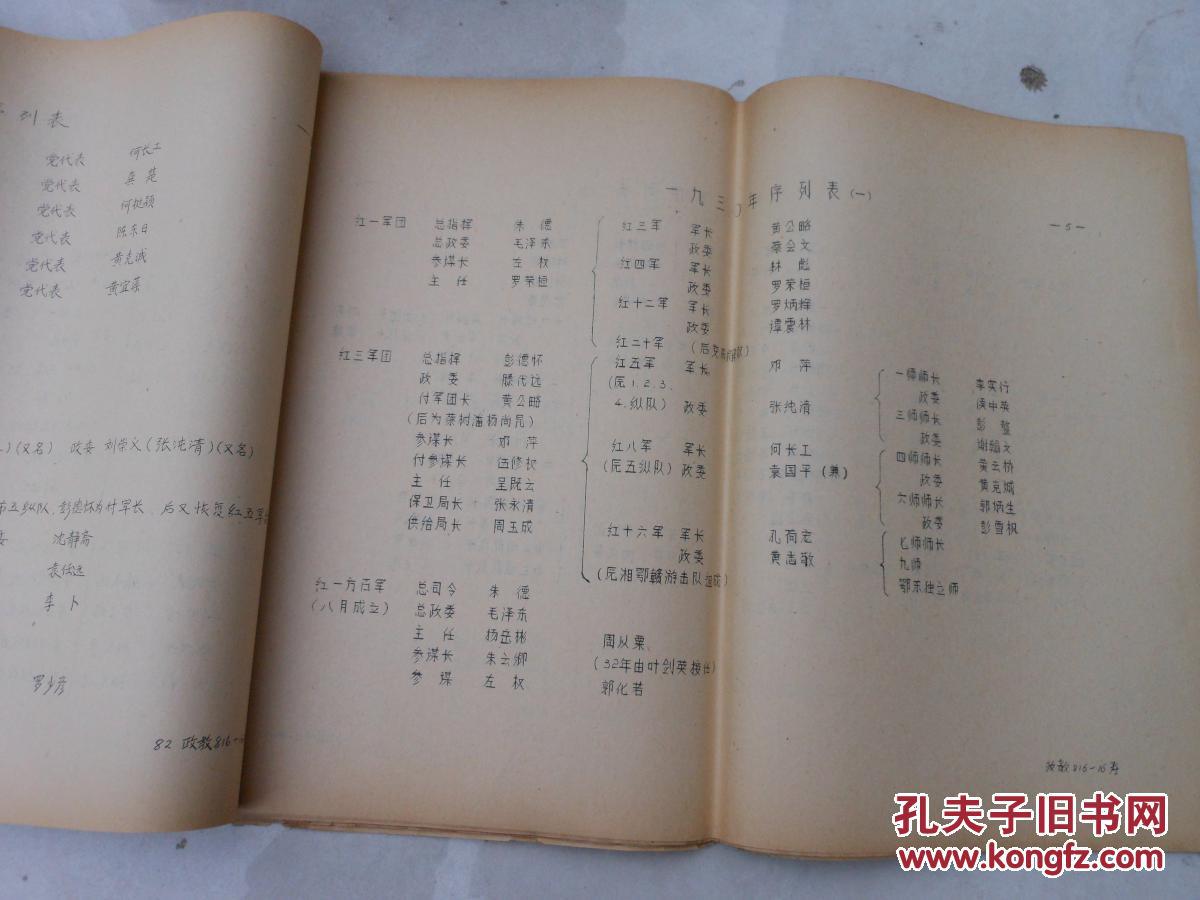 列表
党代表 何长工
党代表 龚楚
党代表 何挺颖
党代表 陈东日
党代表 黄克诚
党代表 黄宜葉
(又名) 政委 刘崇义(张沌清)(又名)
五纵队,彭德怀为付军长、后又恢复红五军
沈静斋
袁任远
李卜
罗少彦
82 政教816-
一九三〇年序列表(一)
-5-
红一军团 总指挥 朱德
总政委 毛泽东
参谋长 左权
主任 罗荣桓
红三军 军长 黄公略
政委 蔡会文
红四军 军长 林彪
政委 罗荣桓
红十二军 军长 罗炳辉
政委 谭震林
红二十军
红三军团 总指挥 彭德怀
政委 滕代远
付军团长 黄公略
(后为蔡树潘杨尚昆)
参谋长 邓萍
付参谋长 伍修权
主任 吴既云
保卫局长 张永清
供给局长 周玉成
红五军 军长 邓萍
(原1.2.3.
4.纵队) 政委 张纯清
红八军 军长 何长工
(原五纵队) 政委 袁国平(兼)
红十六军 军长 孔荷宠
政委 黄志敬
(原湘鄂赣游击队组成)
一师师长 李实行
政委
三师师长 彭鳌
政委 谢翰文
四师师长 黄云桥
政委 黄克诚
六师师长 郭炳生
政委 彭雪枫
七师师长
九师
鄂东独立师
红一方面军 总司令 朱德
(八月成立) 总政委 毛泽东
主任 杨岳彬 周从粟
参谋长 朱云卿 (32年由叶剑英接任)
参谋 左权 郭化若
政教816-16寿
孔夫子旧书网
www.kongfz.com